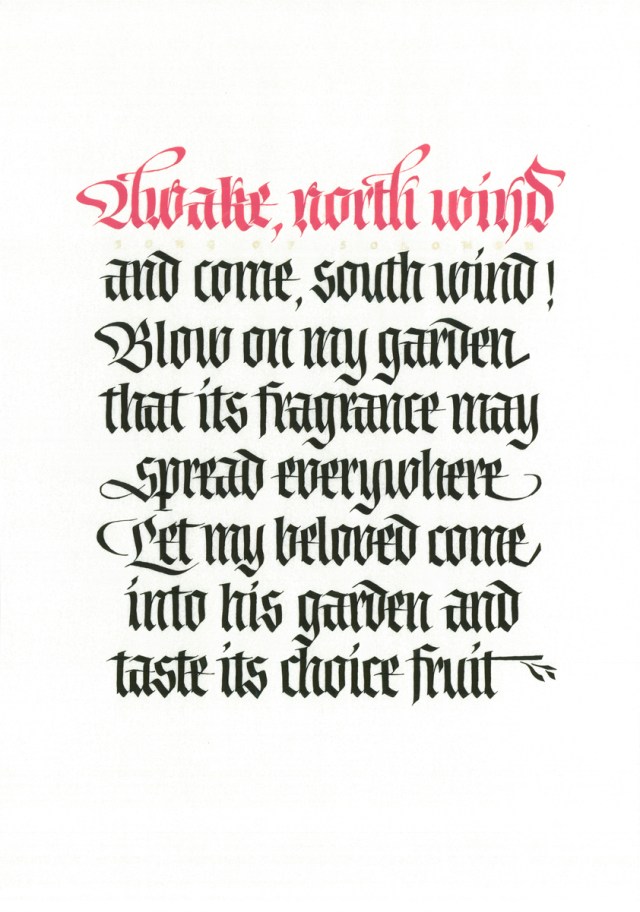 Awake, north wind
SONG OF SOLOMON
and come, south wind!
Blow on my garden
that its fragrance may
spread everywhere
Let my beloved come
into his garden and
taste its choice fruit